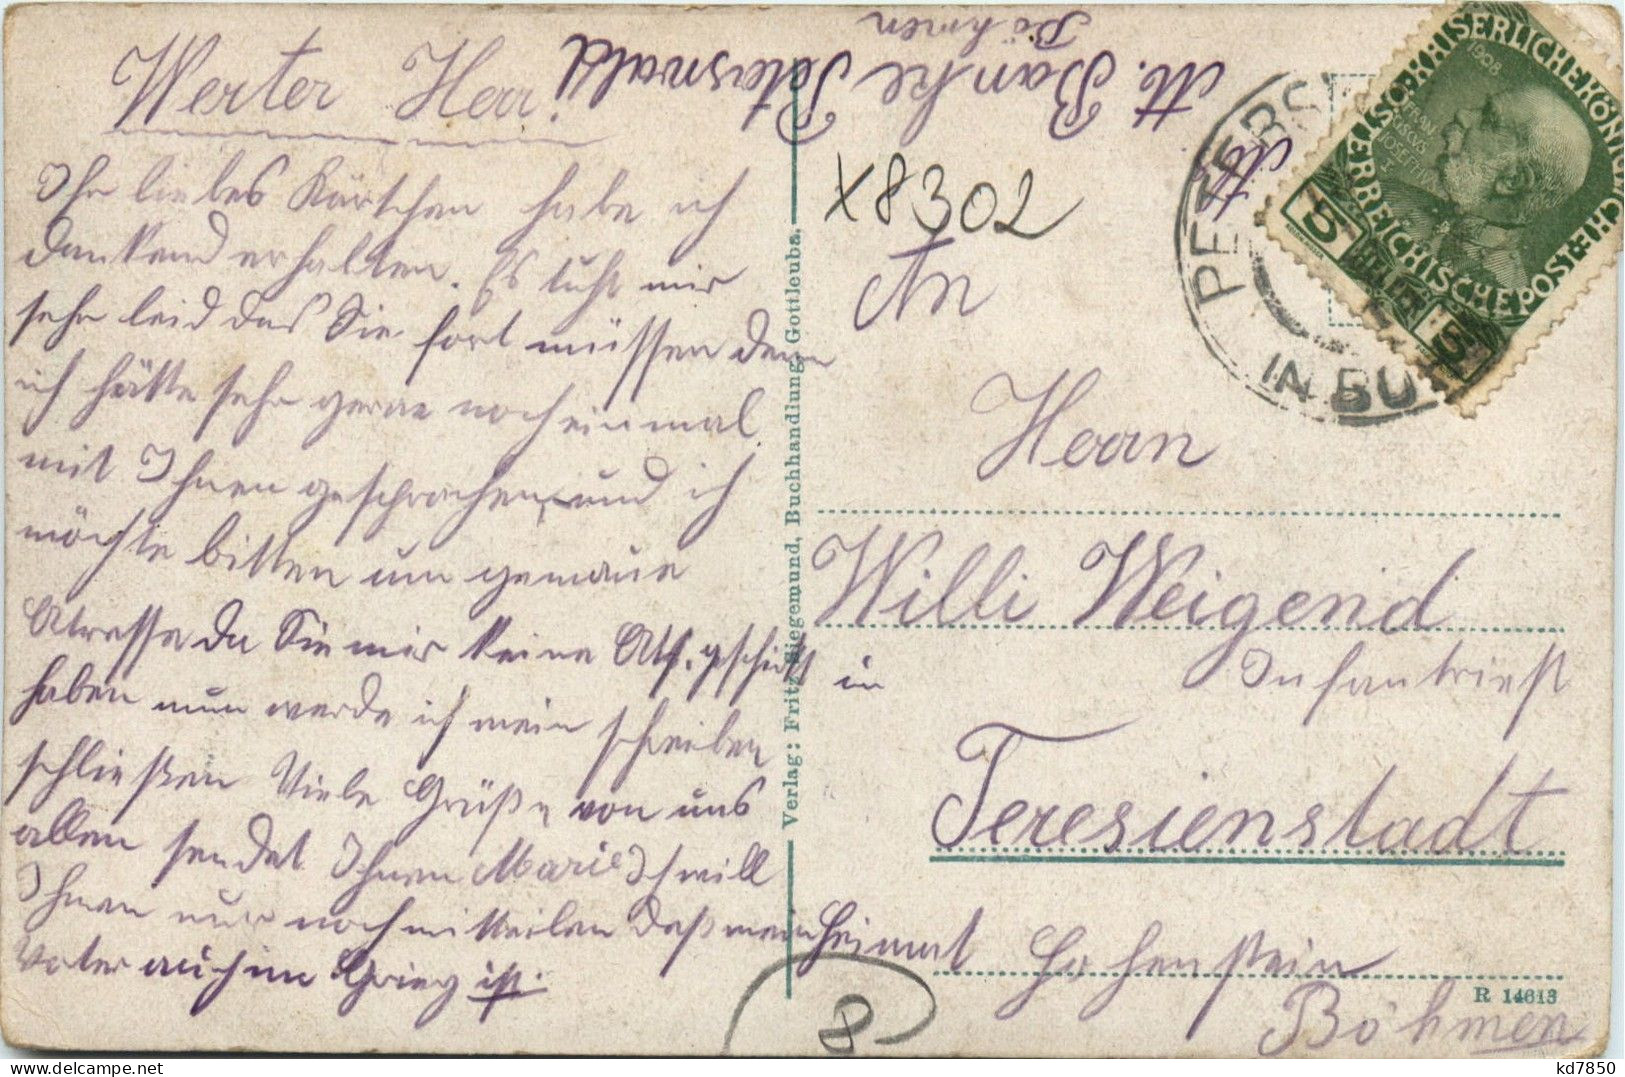 Werter Herr!
Ihr liebes Kärtchen habe ich
dankend erhalten. Es tuht mir
sehr leid das Sie fort müssen denn
ich hätte sehr gerne noch einmal
mit Ihnen gesprochen und ich
möchte bitten um genaue
Atresse da Sie mir keine geschickt
haben nun werde ich mein schreiben
schließen Viele Grüße von uns
allen sendet Ihnen Marie Ich will
Ihnen nur noch mitteilen daß mein
Vater auch im Krieg ist.
M. Banke Peterswald
Böhmen
X8302
An
Herrn
Willi Weigend
Infantrist
in Teresienstadt
Heimat Hohenstein
Böhmen
Verlag: Fritz Siegemund, Buchhandlung, Gottleuba.
R 14613
PETERS
IN BÖ
KAISERLICHE KÖNIGLICHE
ÖSTERREICHISCHE POST
1908
5 HELLER 5
8
kd7850